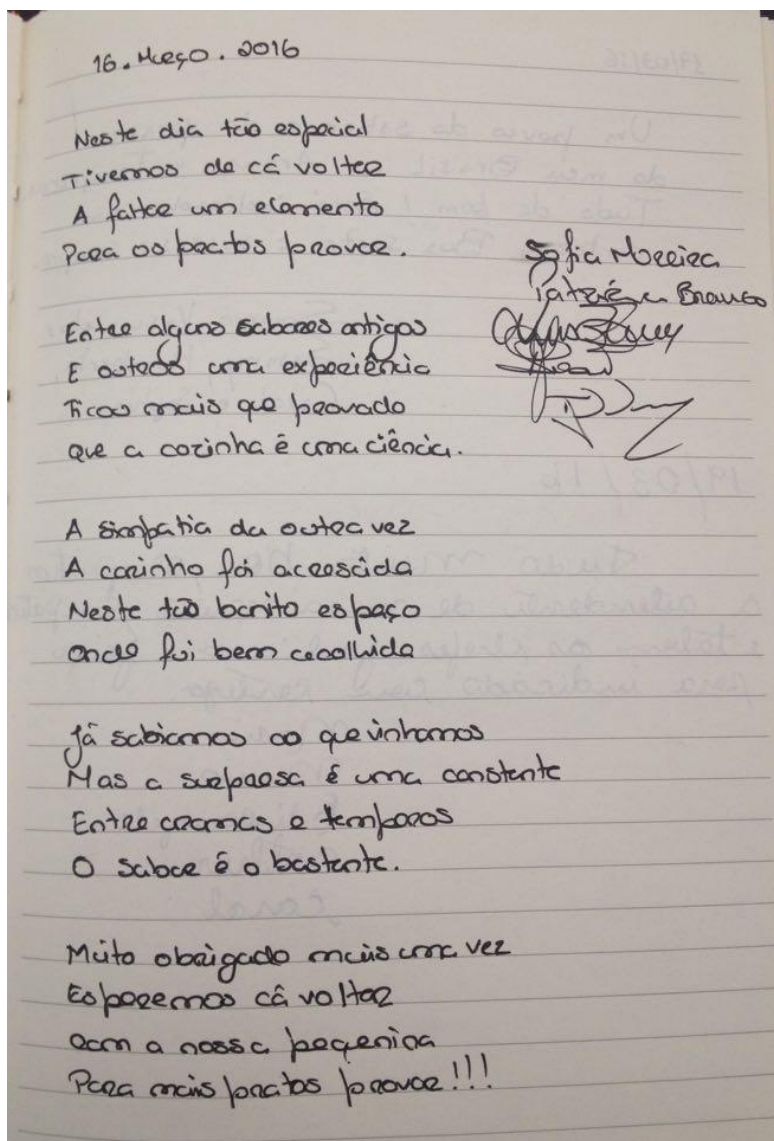 16. Março. 2016
Neste dia tão especial
Tivemos de cá voltar
A faltar um elemento
Para os pratos provar.
Sofia Moreira
Branco
Entre alguns sabores antigos
E outros uma experiência
Ficou mais que provado
que a cozinha é uma ciência.
A simpatia da outra vez
A carinho foi acrescida
Neste tão bonito espaço
onde fui bem acolhida
Já sabiamos ao que vinhamos
Mas a surpresa é uma constante
Entre aromas e temperos
O sabor é o bastante.
Muito obrigado mais uma vez
Esperemos cá voltar
com a nossa pequenina
Para mais pratos provar!!!